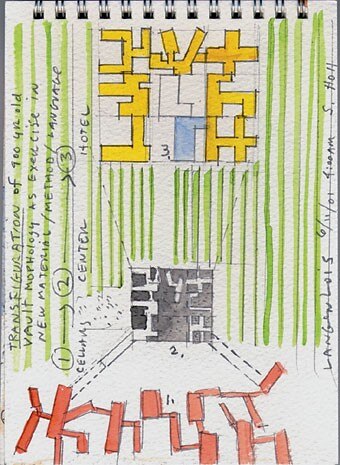 TRANSFIGURATION of 900 YR old
VAULT MORPHOLOGY AS EXERCISE IN
NEW MATERIAL / METHOD / LANGUAGE
① → ② → ③
CELLARS CENTER HOTEL
3.
2.
1.
LANGENLOIS 6/11/01 4:00AM S. HOLL